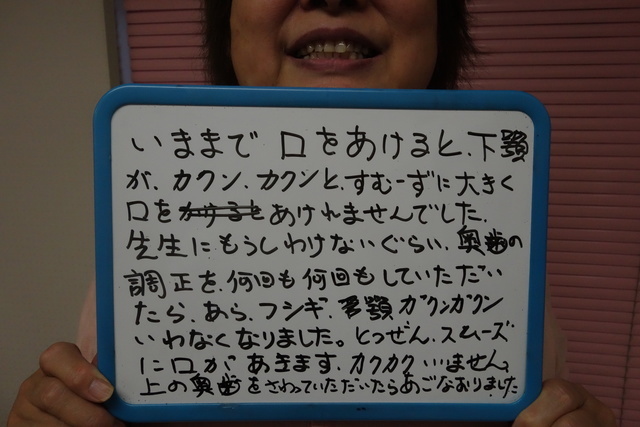 いままで 口をあけると、下顎
が、カクン、カクンと、すむーずに大きく
口を あけれませんでした、
先生にもうしわけないぐらい、奥歯の
調正を、何回も何回もしていただい
たら、あら、フシギ、顎ガクンガクン
いわなくなりました。とつぜん、スムーズ
に口があきます、カクカクいいません、
上の奥歯をさわっていただいたらあごなおりました